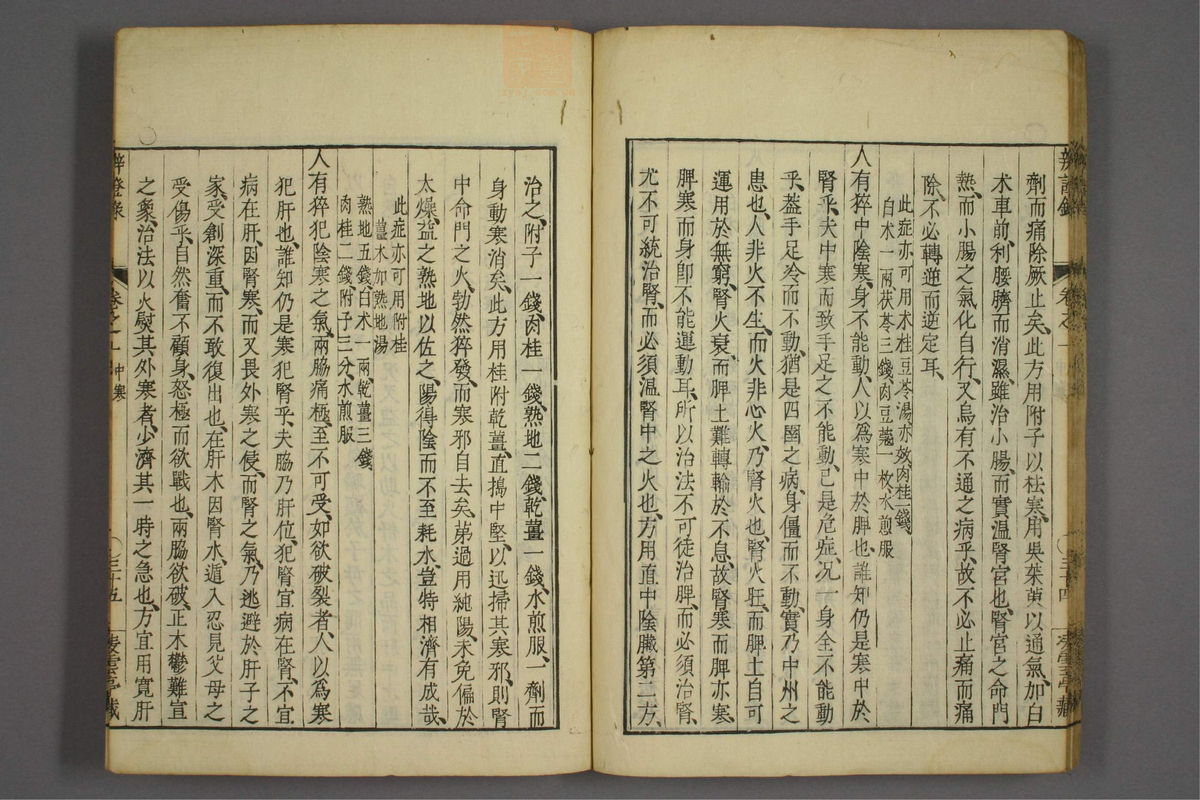 辨證錄 卷之一
劑而痛除厥止矣此方用附子以祛寒用吳茱萸以通氣加白
术車前利腰臍而消濕雖治小腸而實溫腎宮也腎宮之命門
熱而小腸之氣化自行又烏有不通之病乎故不必止痛而痛
除不必轉逆而逆定耳
此症亦可用术桂豆苓湯亦效肉桂一錢
白术一兩茯苓三錢肉豆蔻一枚水煎服
人有猝中陰寒身不能動人以為寒中於脾也誰知仍是寒中於
腎乎夫中寒而致手足之不能動已是危症況一身全不能動
乎蓋手足冷而不動猶是四圍之病身僵而不動實乃中州之
患也人非火不生而火非心火乃腎火也腎火旺而脾土自可
運用於無窮腎火衰而脾土難轉輪於不息故腎寒而脾亦寒
脾寒而身即不能運動耳所以治法不可徒治脾而必須治腎
尤不可統治腎而必須溫腎中之火也方用直中陰臟第二方
治之附子一錢肉桂一錢熟地二錢乾薑一錢水煎服一劑而
身動寒消矣此方用桂附乾薑直搗中堅以迅掃其寒邪則腎
中命門之火勃然猝發而寒邪自去矣第過用純陽未免偏於
太燥益之熟地以佐之陽得陰而不至耗水豈特相濟有成哉
此症亦可用附桂
薑术加熟地湯
熟地五錢白术一兩乾薑三錢
肉桂二錢附子三分水煎服
人有猝犯陰寒之氣兩脇痛極至不可受如欲破裂者人以為寒
犯肝也誰知仍是寒犯腎乎夫脇乃肝位犯腎宜病在腎不宜
病在肝因腎寒而又畏外寒之侵而腎之氣乃逃避於肝子之
家受創深重而不敢復出也在肝木因腎水遁入忍見父母之
受傷乎自然奮不顧身怒極而欲戰也兩脇欲破正木鬱難宣
之象治法以火熨其外寒者少濟其一時之急也方宜用寬肝
卷之一 中寒 三十五